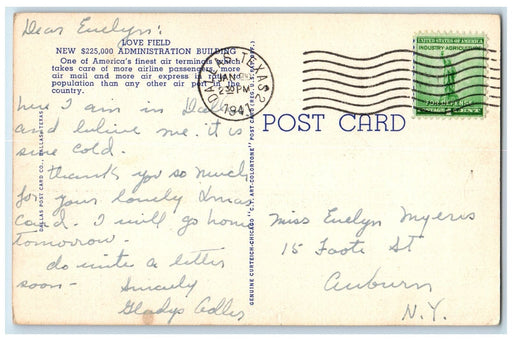 Dear Evelyn:
LOVE FIELD
NEW $225,000 ADMINISTRATION BUILDING
One of America's finest air terminals which
takes care of more airline passengers, more
air mail and more air express in ratio to
population than any other air port in the
country.
here I am in Dallas
and believe me it is
sure cold.
thank you so much
for your lovely Xmas
card. I will go home
tomorrow.
do write a letter
soon-
Sincerely
Gladys Adler
DALLAS POST CARD CO., DALLAS, TEXAS
GENUINE CURTEICH-CHICAGO "C.T. ART-COLORTONE" POST CARD
DALLAS, TEXAS
JAN
230 PM
1941
UNITED STATES OF AMERICA
INDUSTRY AGRICULTURE
FOR DEFENSE
POST CARD
Miss Evelyn Myers
15 Foote St
Auburn
N.Y.